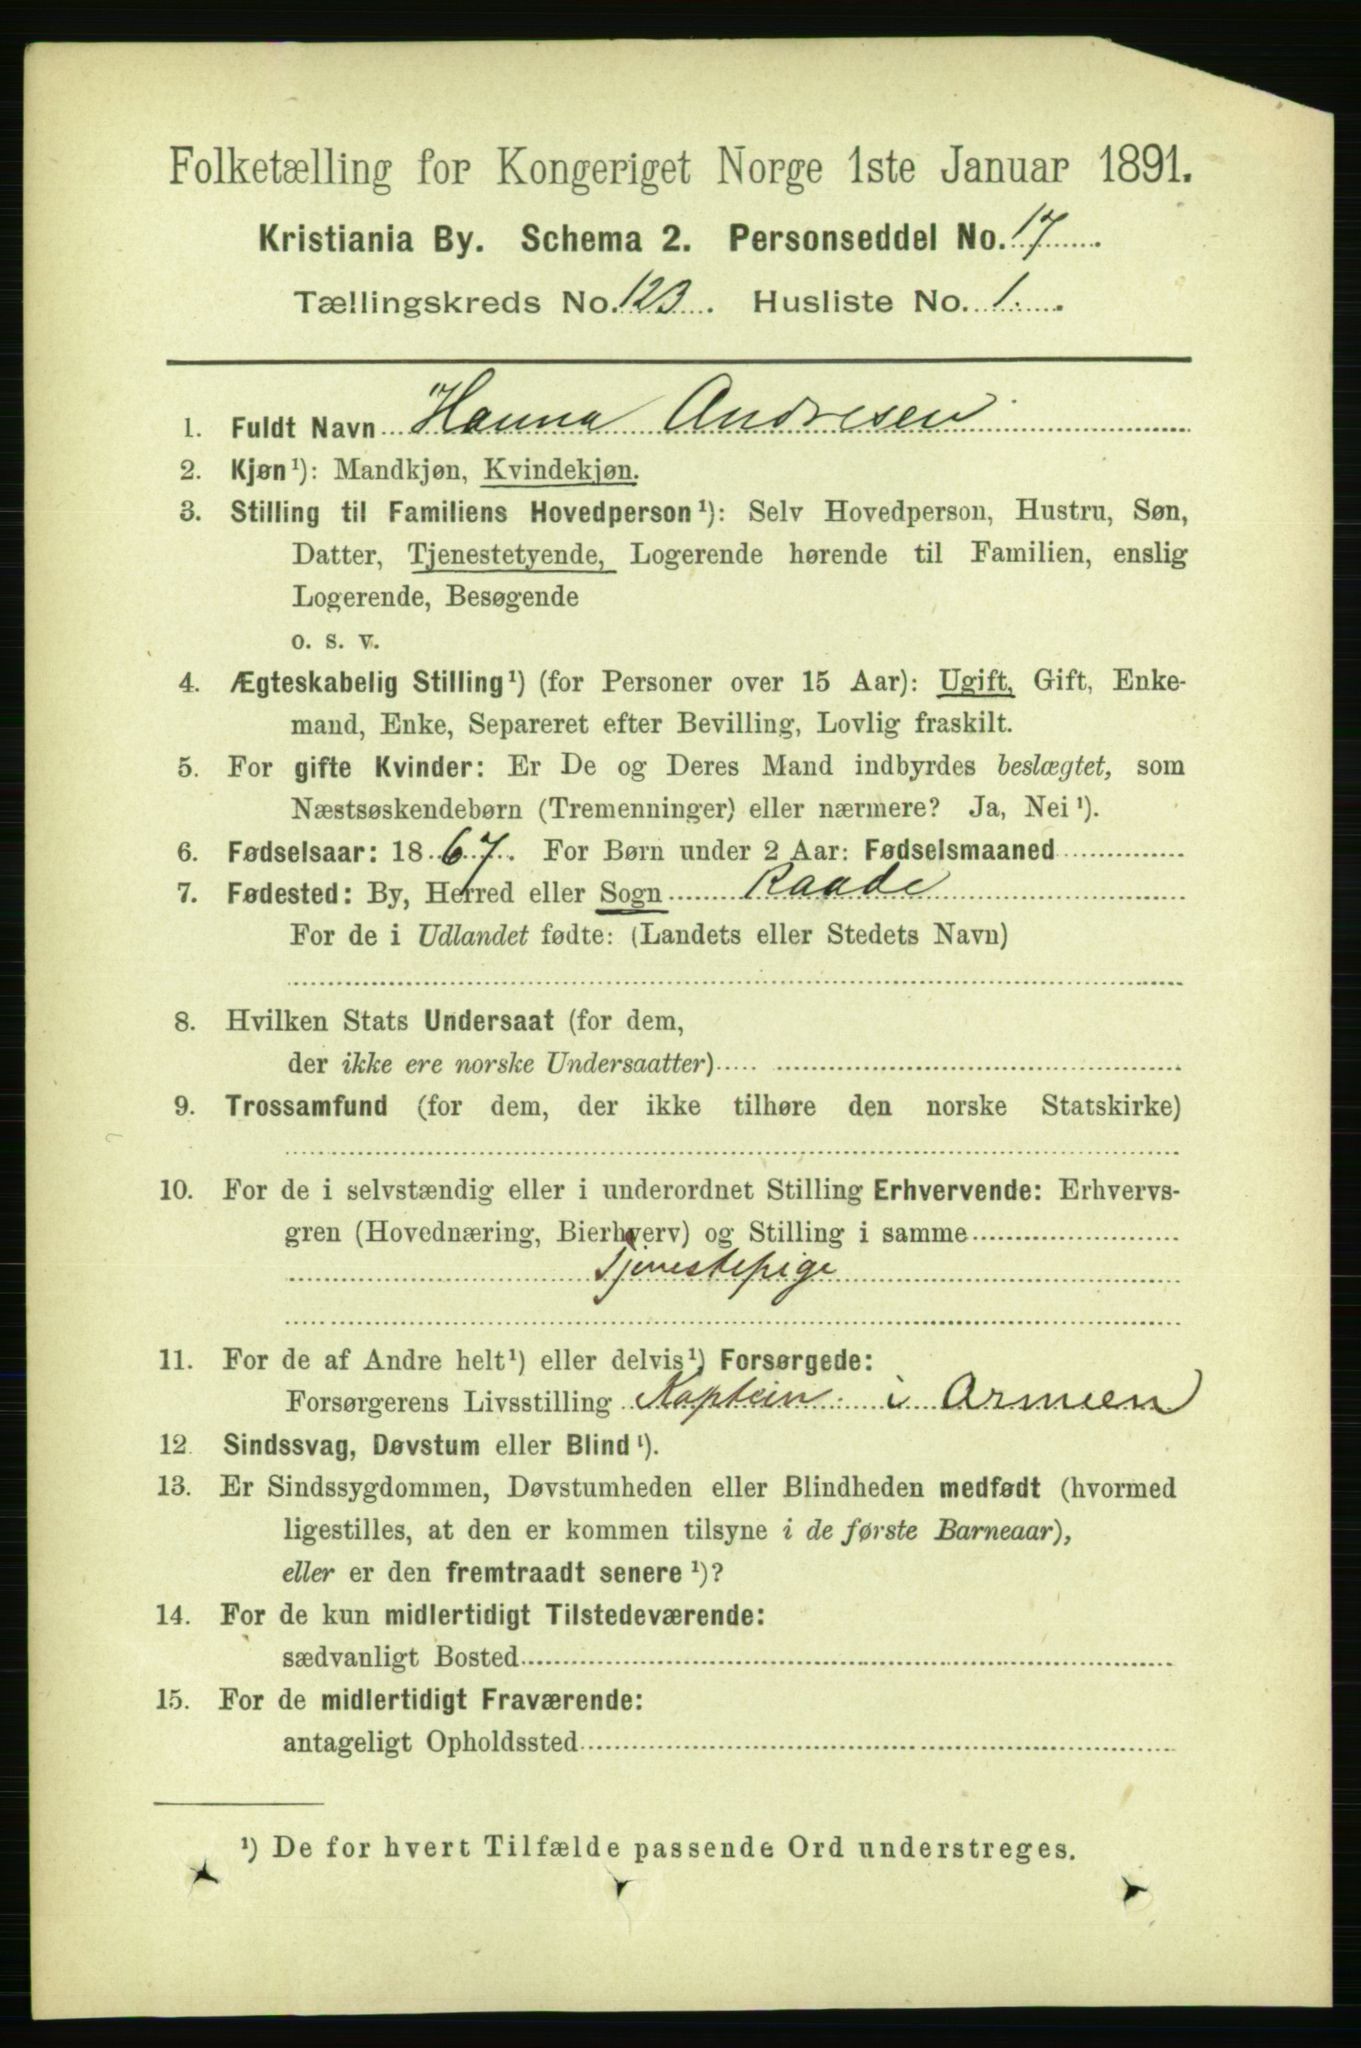 Folketælling for Kongeriget Norge 1ste Januar 1891.
Kristiania By. Schema 2. Personseddel No. 17
Tællingskreds No. 123. Husliste No. 1.
1. Fuldt Navn Hanna Andresen
2. Kjøn¹): Mandkjøn, Kvindekjøn.
3. Stilling til Familiens Hovedperson¹): Selv Hovedperson, Hustru, Søn,
Datter, Tjenestetyende, Logerende hørende til Familien, enslig
Logerende, Besøgende
o. s. v.
4. Ægteskabelig Stilling¹) (for Personer over 15 Aar): Ugift, Gift, Enke-
mand, Enke, Separeret efter Bevilling, Lovlig fraskilt.
5. For gifte Kvinder: Er De og Deres Mand indbyrdes beslægtet, som
Næstsøskendebørn (Tremenninger) eller nærmere? Ja, Nei¹).
6. Fødselsaar: 1867. For Børn under 2 Aar: Fødselsmaaned
7. Fødested: By, Herred eller Sogn Raade
For de i Udlandet fødte: (Landets eller Stedets Navn)
8. Hvilken Stats Undersaat (for dem,
der ikke ere norske Undersaatter)
9. Trossamfund (for dem, der ikke tilhøre den norske Statskirke)
10. For de i selvstændig eller i underordnet Stilling Erhvervende: Erhvervs-
gren (Hovednæring, Bierhverv) og Stilling i samme
Tjenestepige
11. For de af Andre helt¹) eller delvis¹) Forsørgede:
Forsørgerens Livsstilling Kaptein i Armeen
12. Sindssvag, Døvstum eller Blind¹).
13. Er Sindssygdommen, Døvstumheden eller Blindheden medfødt (hvormed
ligestilles, at den er kommen tilsyne i de første Barneaar),
eller er den fremtraadt senere¹)?
14. For de kun midlertidigt Tilstedeværende:
sædvanligt Bosted
15. For de midlertidigt Fraværende:
antageligt Opholdssted
¹) De for hvert Tilfælde passende Ord understreges.